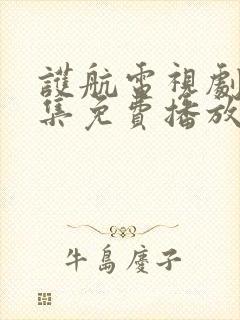 護航電視劇
集免費播放
牛島慶子